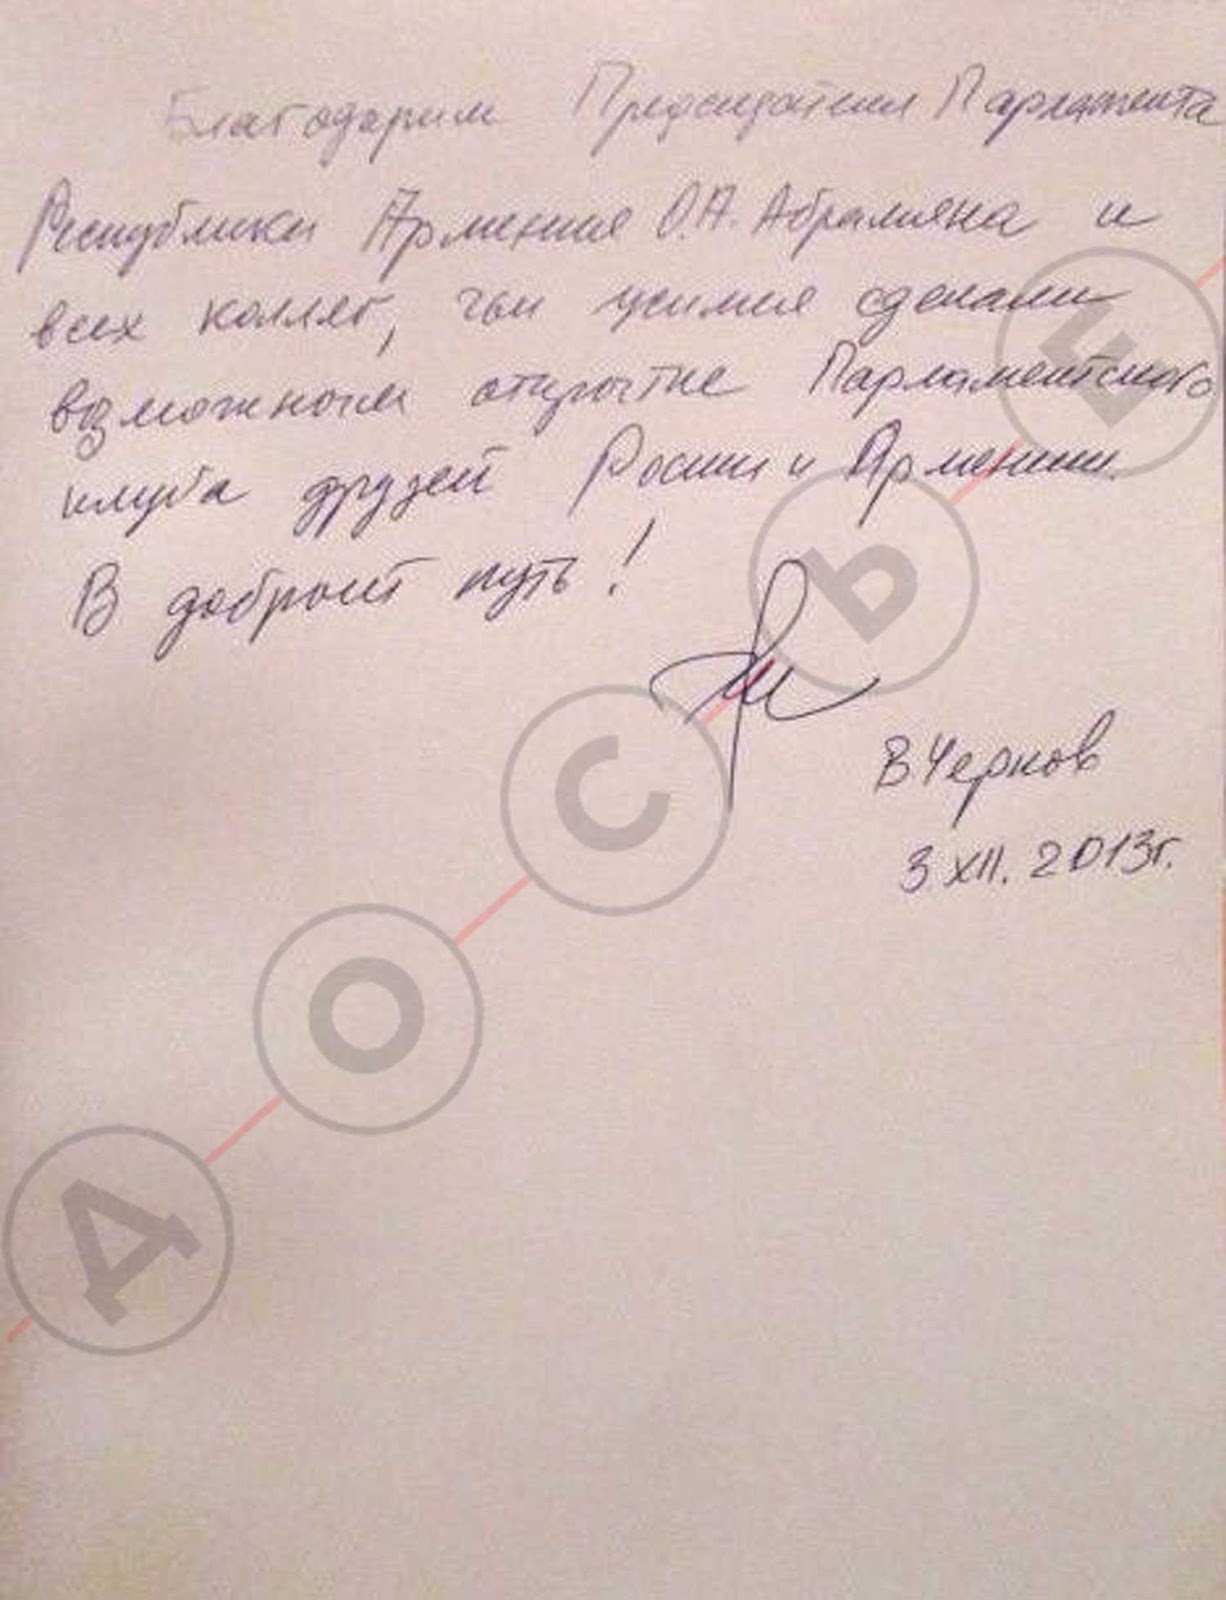 Благодарим Председателя Парламента
Республики Армения О.А. Абрамяна и
всех коллег, чьи усилия сделали
возможным открытие Парламентского
клуба друзей России и Армении.
В добрый путь!
В Чернов
3 XII. 2013г.
ДОСЬЕ